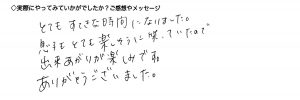 ○実際にやってみていかがでしたか？ご感想やメッセージ
とてもすてきな時間になりました。
息子もとても楽しそうに咲いていたので
出来あがりが楽しみです。
ありがとうございました。